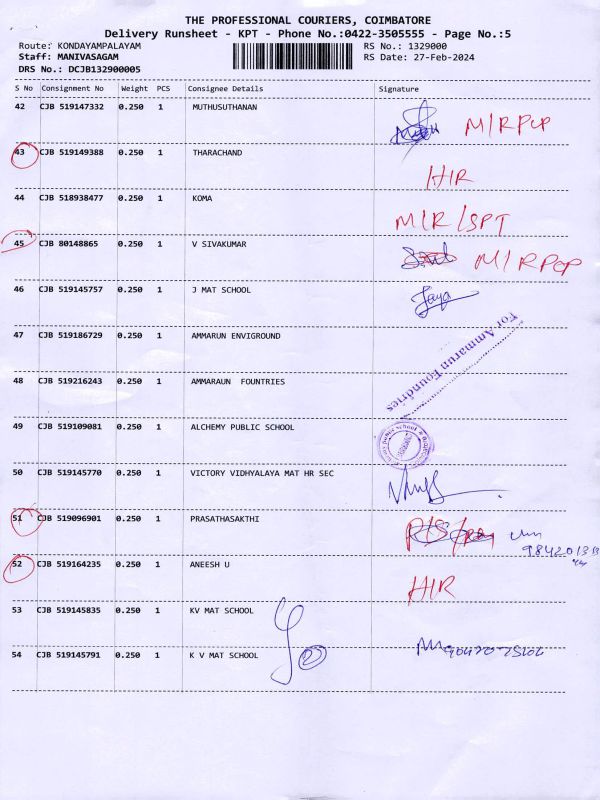 THE PROFESSIONAL COURIERS, COIMBATORE
Delivery Runsheet - KPT - Phone No.:0422-3505555 - Page No.:5
Route: KONDAYAMPALAYAM RS No.: 1329000
Staff: MANIVASAGAM RS Date: 27-Feb-2024
DRS No.: DCJB132900005
S No Consignment No Weight PCS Consignee Details Signature
42 CJB 519147332 0.250 1 MUTHUSUTHANAN M/RPCP
43 CJB 519149388 0.250 1 THARACHAND H/R
44 CJB 518938477 0.250 1 KOMA M/R/SPT
45 CJB 80148865 0.250 1 V SIVAKUMAR M/RPCP
46 CJB 519145757 0.250 1 J MAT SCHOOL Jaya
47 CJB 519186729 0.250 1 AMMARUN ENVIGROUND
For Ammarun Foundries
48 CJB 519216243 0.250 1 AMMARAUN FOUNTRIES
49 CJB 519109081 0.250 1 ALCHEMY PUBLIC SCHOOL
50 CJB 519145770 0.250 1 VICTORY VIDHYALAYA MAT HR SEC
51 CJB 519096901 0.250 1 PRASATHASAKTHI
52 CJB 519164235 0.250 1 ANEESH U H/R
53 CJB 519145835 0.250 1 KV MAT SCHOOL
54 CJB 519145791 0.250 1 K V MAT SCHOOL